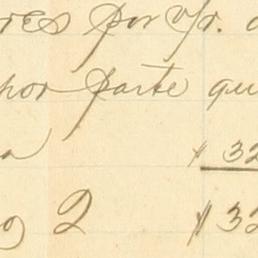 res por v/r. d
por parte qu
a $ 32
og 2 $ 32